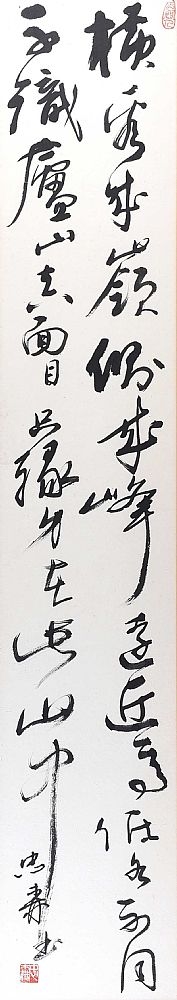 横看成嶺側成峰遠近高低各不同
不識廬山真面目只緣身在此山中